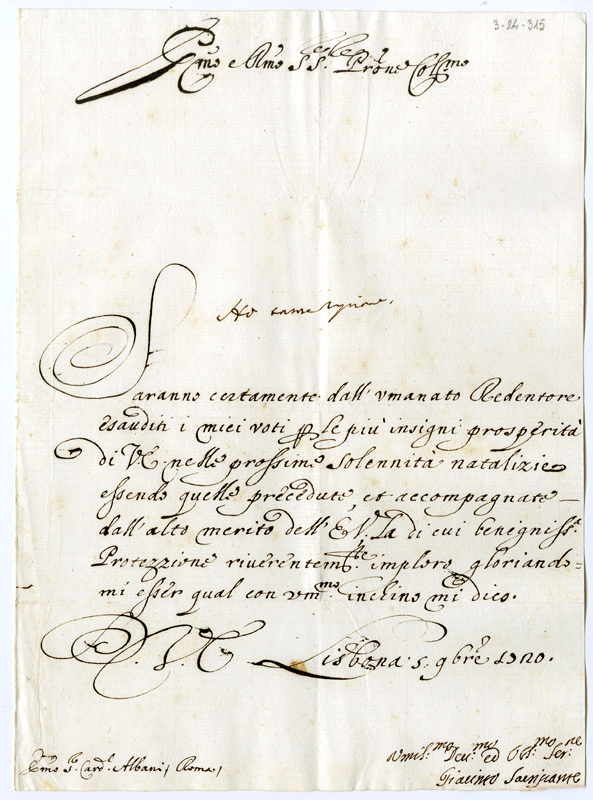 3-24-315
Em̃o e Rm̃o Sr. Prone Colmo
Saranno certamente dall' umanato Redentore
esauditi i miei voti p le più insigni prosperità
di V.E. nelle prossime solennità natalizie
essendo quelle precedute, et accompagnate
dall' alto merito dell' E.V. La di cui benegniss.a
Protezzione riverentem.te imploro, gloriando=
mi esser qual con um.mo inchino mi dico.
D. V. E. Lisbona 5. 9bre 1720.
Umil.mo Deu.mo ed Obl.mo Ser.re
Emo Sr. Card.l Albani / Roma /